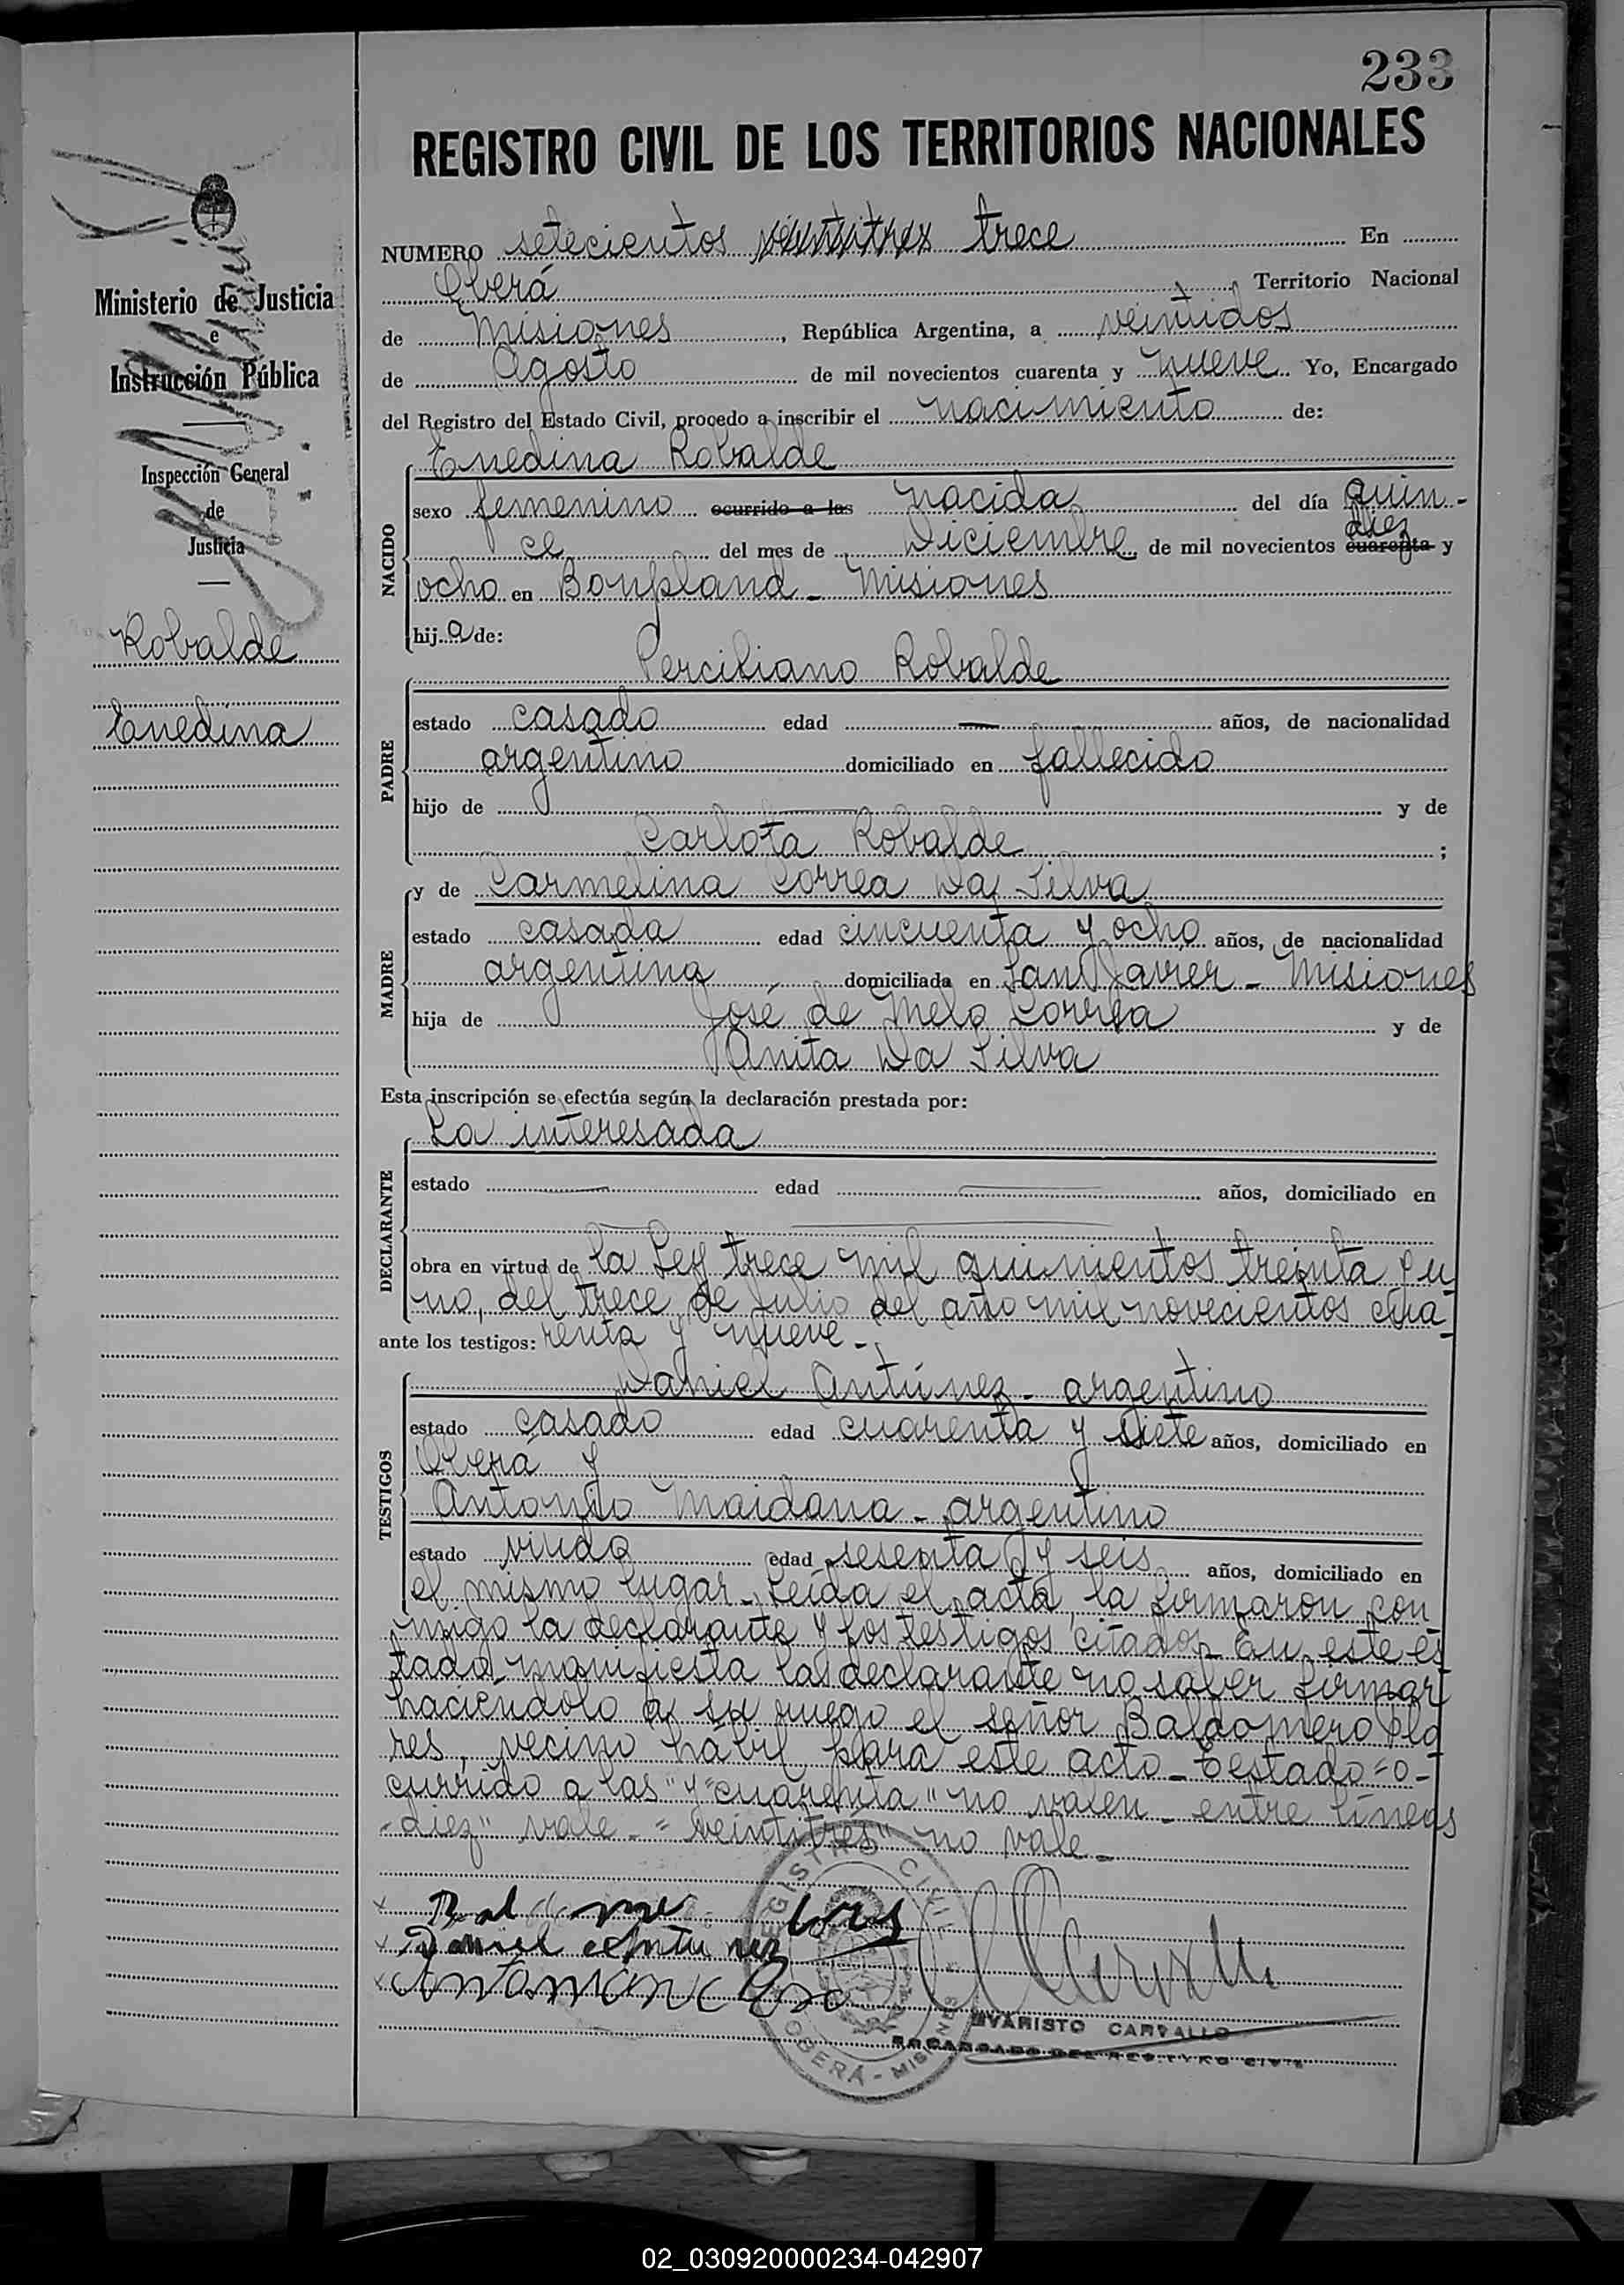 233
REGISTRO CIVIL DE LOS TERRITORIOS NACIONALES
NUMERO setecientos veintitres trece En
Oberá, Territorio Nacional
de Misiones, República Argentina, a veintidos
de Agosto de mil novecientos cuarenta y nueve Yo, Encargado
del Registro del Estado Civil, procedo a inscribir el nacimiento de:
Enedina Robalde
NACIDO
sexo femenino ocurrido a las nacida del día quin-
diez
ce del mes de Diciembre de mil novecientos cuarenta y
ocho en Bonpland - Misiones
hij a de:
Perciliano Robalde
PADRE
estado casado edad — años, de nacionalidad
argentino domiciliado en fallecido
hijo de — y de
Carlota Robalde ;
MADRE
y de Carmelina Correa Da Silva
estado casada edad cincuenta y ocho años, de nacionalidad
argentina domiciliada en San Javier - Misiones
hija de José de Melo Correa y de
Anita Da Silva
Esta inscripción se efectúa según la declaración prestada por:
DECLARANTE
La interesada
estado — edad — años, domiciliado en
obra en virtud de la Ley trece mil quinientos treinta y u
no, del trece de Julio del año mil novecientos cua-
ante los testigos: renta y nueve -
TESTIGOS
Daniel Antúnez - argentino
estado casado edad cuarenta y siete años, domiciliado en
Oberá y
Antonio Maidana - argentino
estado viudo edad sesenta y seis años, domiciliado en
el mismo lugar - Leída el acta, la firmaron con
migo la declarante y los testigos citados - En este es
tado manifiesta la declarante no saber firmar
haciéndolo a su ruego el señor Baldomero Flo
res, vecino hábil para este acto - Testado "o-
currido a las" y "cuarenta" no valen - entre líneas
"diez" vale - "veintitrés" no vale -
Daniel Antunez
REGISTRO CIVIL
OBERÁ - MISIONES
EVARISTO CARVALLO
ENCARGADO DEL REGISTRO CIVIL
Ministerio de Justicia
e
Instrucción Pública
Inspección General
de
Justicia
Robalde
Enedina
02_030920000234-042907